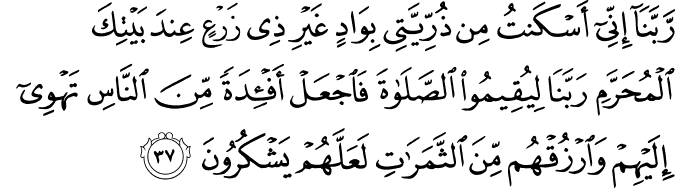 رَّبَّنَآ إِنِّىٓ أَسْكَنتُ مِن ذُرِّيَّتِى بِوَادٍ غَيْرِ ذِى زَرْعٍ عِندَ بَيْتِكَ
ٱلْمُحَرَّمِ رَبَّنَا لِيُقِيمُوا۟ ٱلصَّلَوٰةَ فَٱجْعَلْ أَفْـِٔدَةً مِّنَ ٱلنَّاسِ تَهْوِىٓ
إِلَيْهِمْ وَٱرْزُقْهُم مِّنَ ٱلثَّمَرَٰتِ لَعَلَّهُمْ يَشْكُرُونَ ٣٧